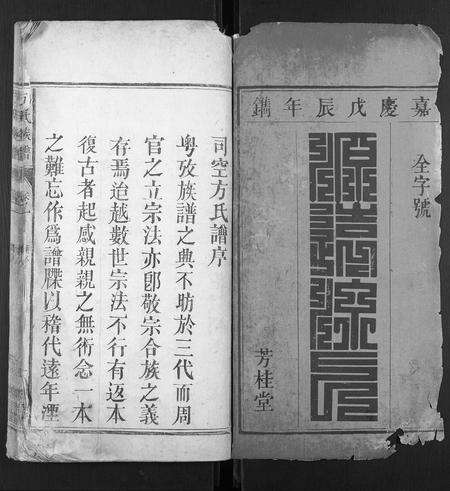 嘉慶戊辰年鐫
仝字號
源遠流長
芳桂堂
司空方氏譜序
粤攷族譜之典不昉於三代而周
官之立宗法亦卽敬宗合族之義
存焉迨越數世宗法不行有返本
復古者起感親親之無術念一本
之難忘作爲譜牒以稽代遠年湮
方氏族譜